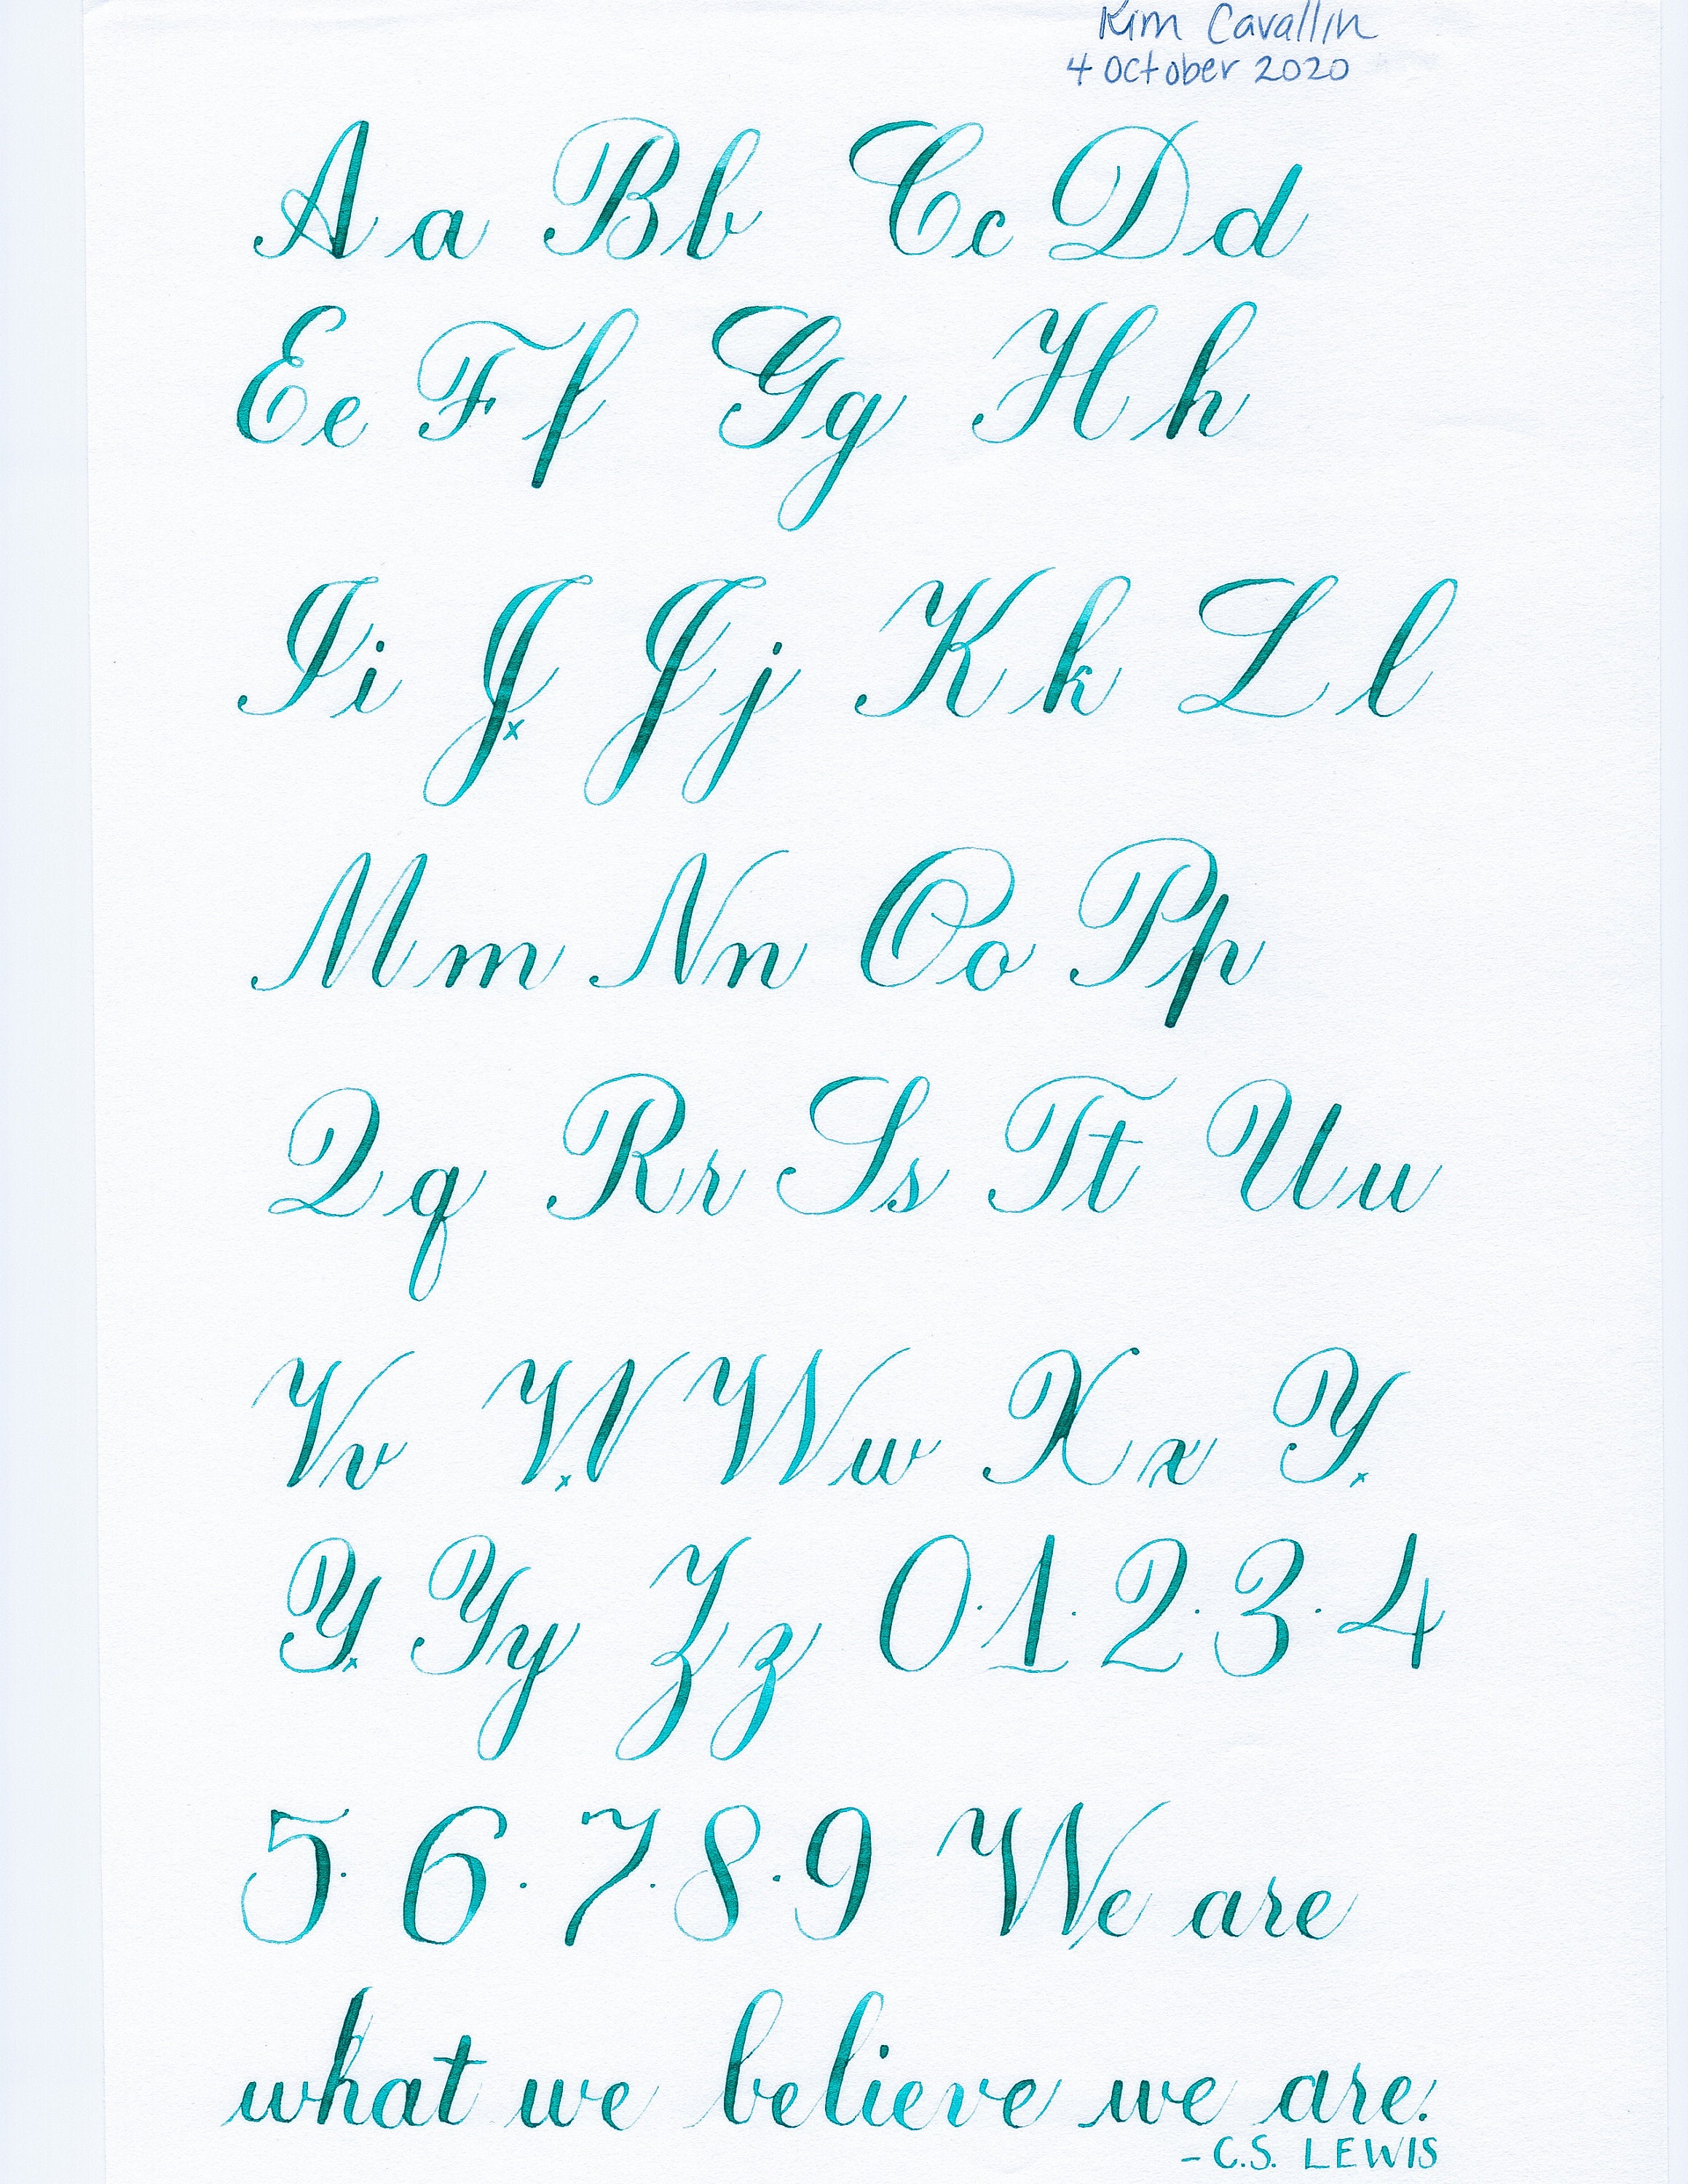 Kim Cavallin
4 October 2020
Aa Bb Cc Dd
Ee Ff Gg Hh
Ii J x Jj Kk Ll
Mm Nn Oo Pp
Qq Rr Ss Tt Uu
Vv W x Ww Xx Y x
Y x Yy Zz 0·1·2·3·4
5·6·7·8·9 We are
what we believe we are.
-C.S. LEWIS